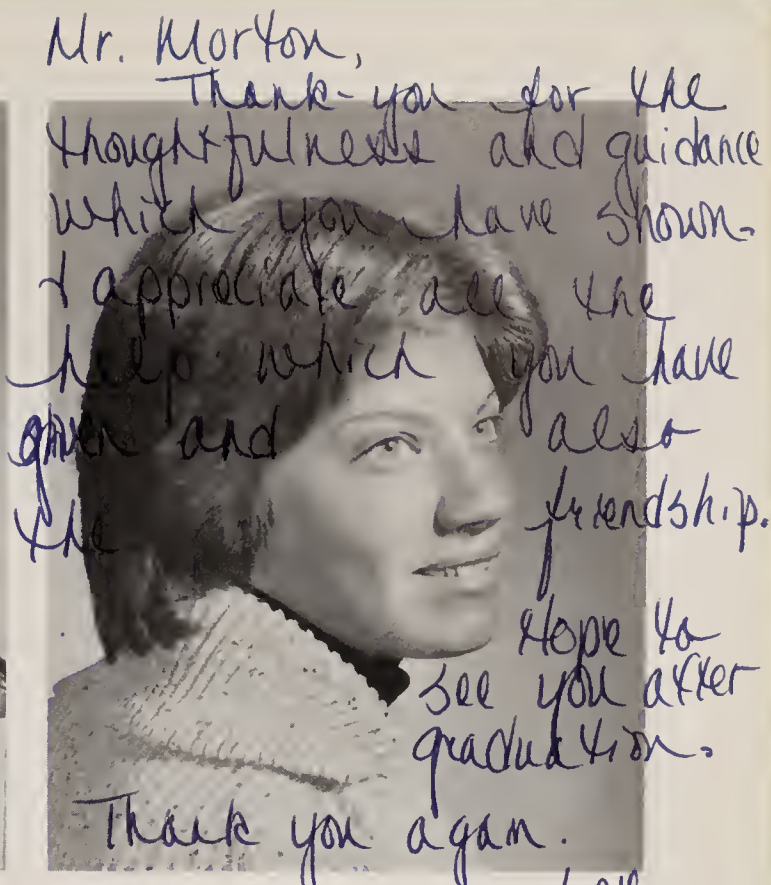 Mr. Morton,
Thank-you for the
thoughtfulness and guidance
which you have shown.
I appreciate all the
help which you have
given and also
the friendship.
Hope to
see you after
graduation.
Thank you again.
Love